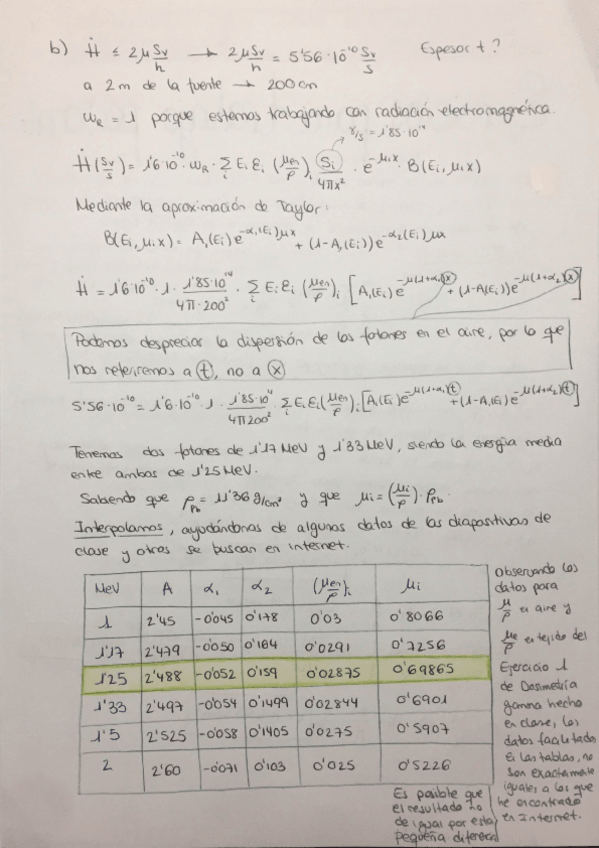 b) Ḣ ≤ 2 μSv/h → 2 μSv/h = 5'56·10⁻¹⁰ Sv/s Espesor t?
a 2m de la fuente → 200cm
ω_R = 1 porque estamos trabajando con radiación electromagnética.
γ/s = 1'85·10¹⁴
Ḣ(Sv/s) = 1'6·10⁻¹⁰ · ω_R · Σᵢ Eᵢ εᵢ (μen/ρ)ᵢ Sᵢ/4πx² · e^(-μᵢx) · B(Eᵢ, μᵢx)
Mediante la aproximación de Taylor:
B(Eᵢ, μᵢx) = A₁(Eᵢ) e^(-α₁(Eᵢ)μx) + (1-A₁(Eᵢ)) e^(-α₂(Eᵢ)μx)
Ḣ = 1'6·10⁻¹⁰ · 1 · 1'85·10¹⁴/4π·200² · Σᵢ Eᵢ εᵢ (μen/ρ)ᵢ [A₁(Eᵢ) e^(-μ(1+α₁)x) + (1-A₁(Eᵢ)) e^(-μ(1+α₂)x)]
Podemos despreciar la dispersión de los fotones en el aire, por lo que
nos referiremos a t, no a x
5'56·10⁻¹⁰ = 1'6·10⁻¹⁰ · 1 · 1'85·10¹⁴/4π200² · Σᵢ Eᵢ εᵢ (μen/ρ)ᵢ [A₁(Eᵢ) e^(-μ(1+α₁)t) + (1-A₁(Eᵢ) e^(-μ(1+α₂)t)]
Tenemos dos fotones de 1'17 MeV y 1'33 MeV, siendo la energía media
entre ambos de 1'25 MeV.
Sabiendo que ρ_Pb = 11'36 g/cm³ y que μᵢ = (μᵢ/ρ) · ρ_Pb.
Interpolamos, ayudándonos de algunos datos de las diapositivas de
clase y otros se buscan en internet.
MeV A α₁ α₂ (μen/ρ)ᵢ μᵢ
1 2'45 -0'045 0'178 0'03 0'8066
1'17 2'479 -0'050 0'164 0'0291 0'7256
1'25 2'488 -0'052 0'159 0'02875 0'69865
1'33 2'497 -0'054 0'1499 0'02844 0'6901
1'5 2'525 -0'058 0'1405 0'0275 0'5907
2 2'60 -0'071 0'103 0'025 0'5226
Observando los
datos para
μ/ρ en aire y
μe/ρ en tejido del
Ejercicio 1
de Dosimetría
gamma hecho
en clase, los
datos facilitado
en las tablas, no
son exactamente
iguales a los que
he encontrado
en Internet.
Es posible que
el resultado no
de igual por esta
pequeña diferencia